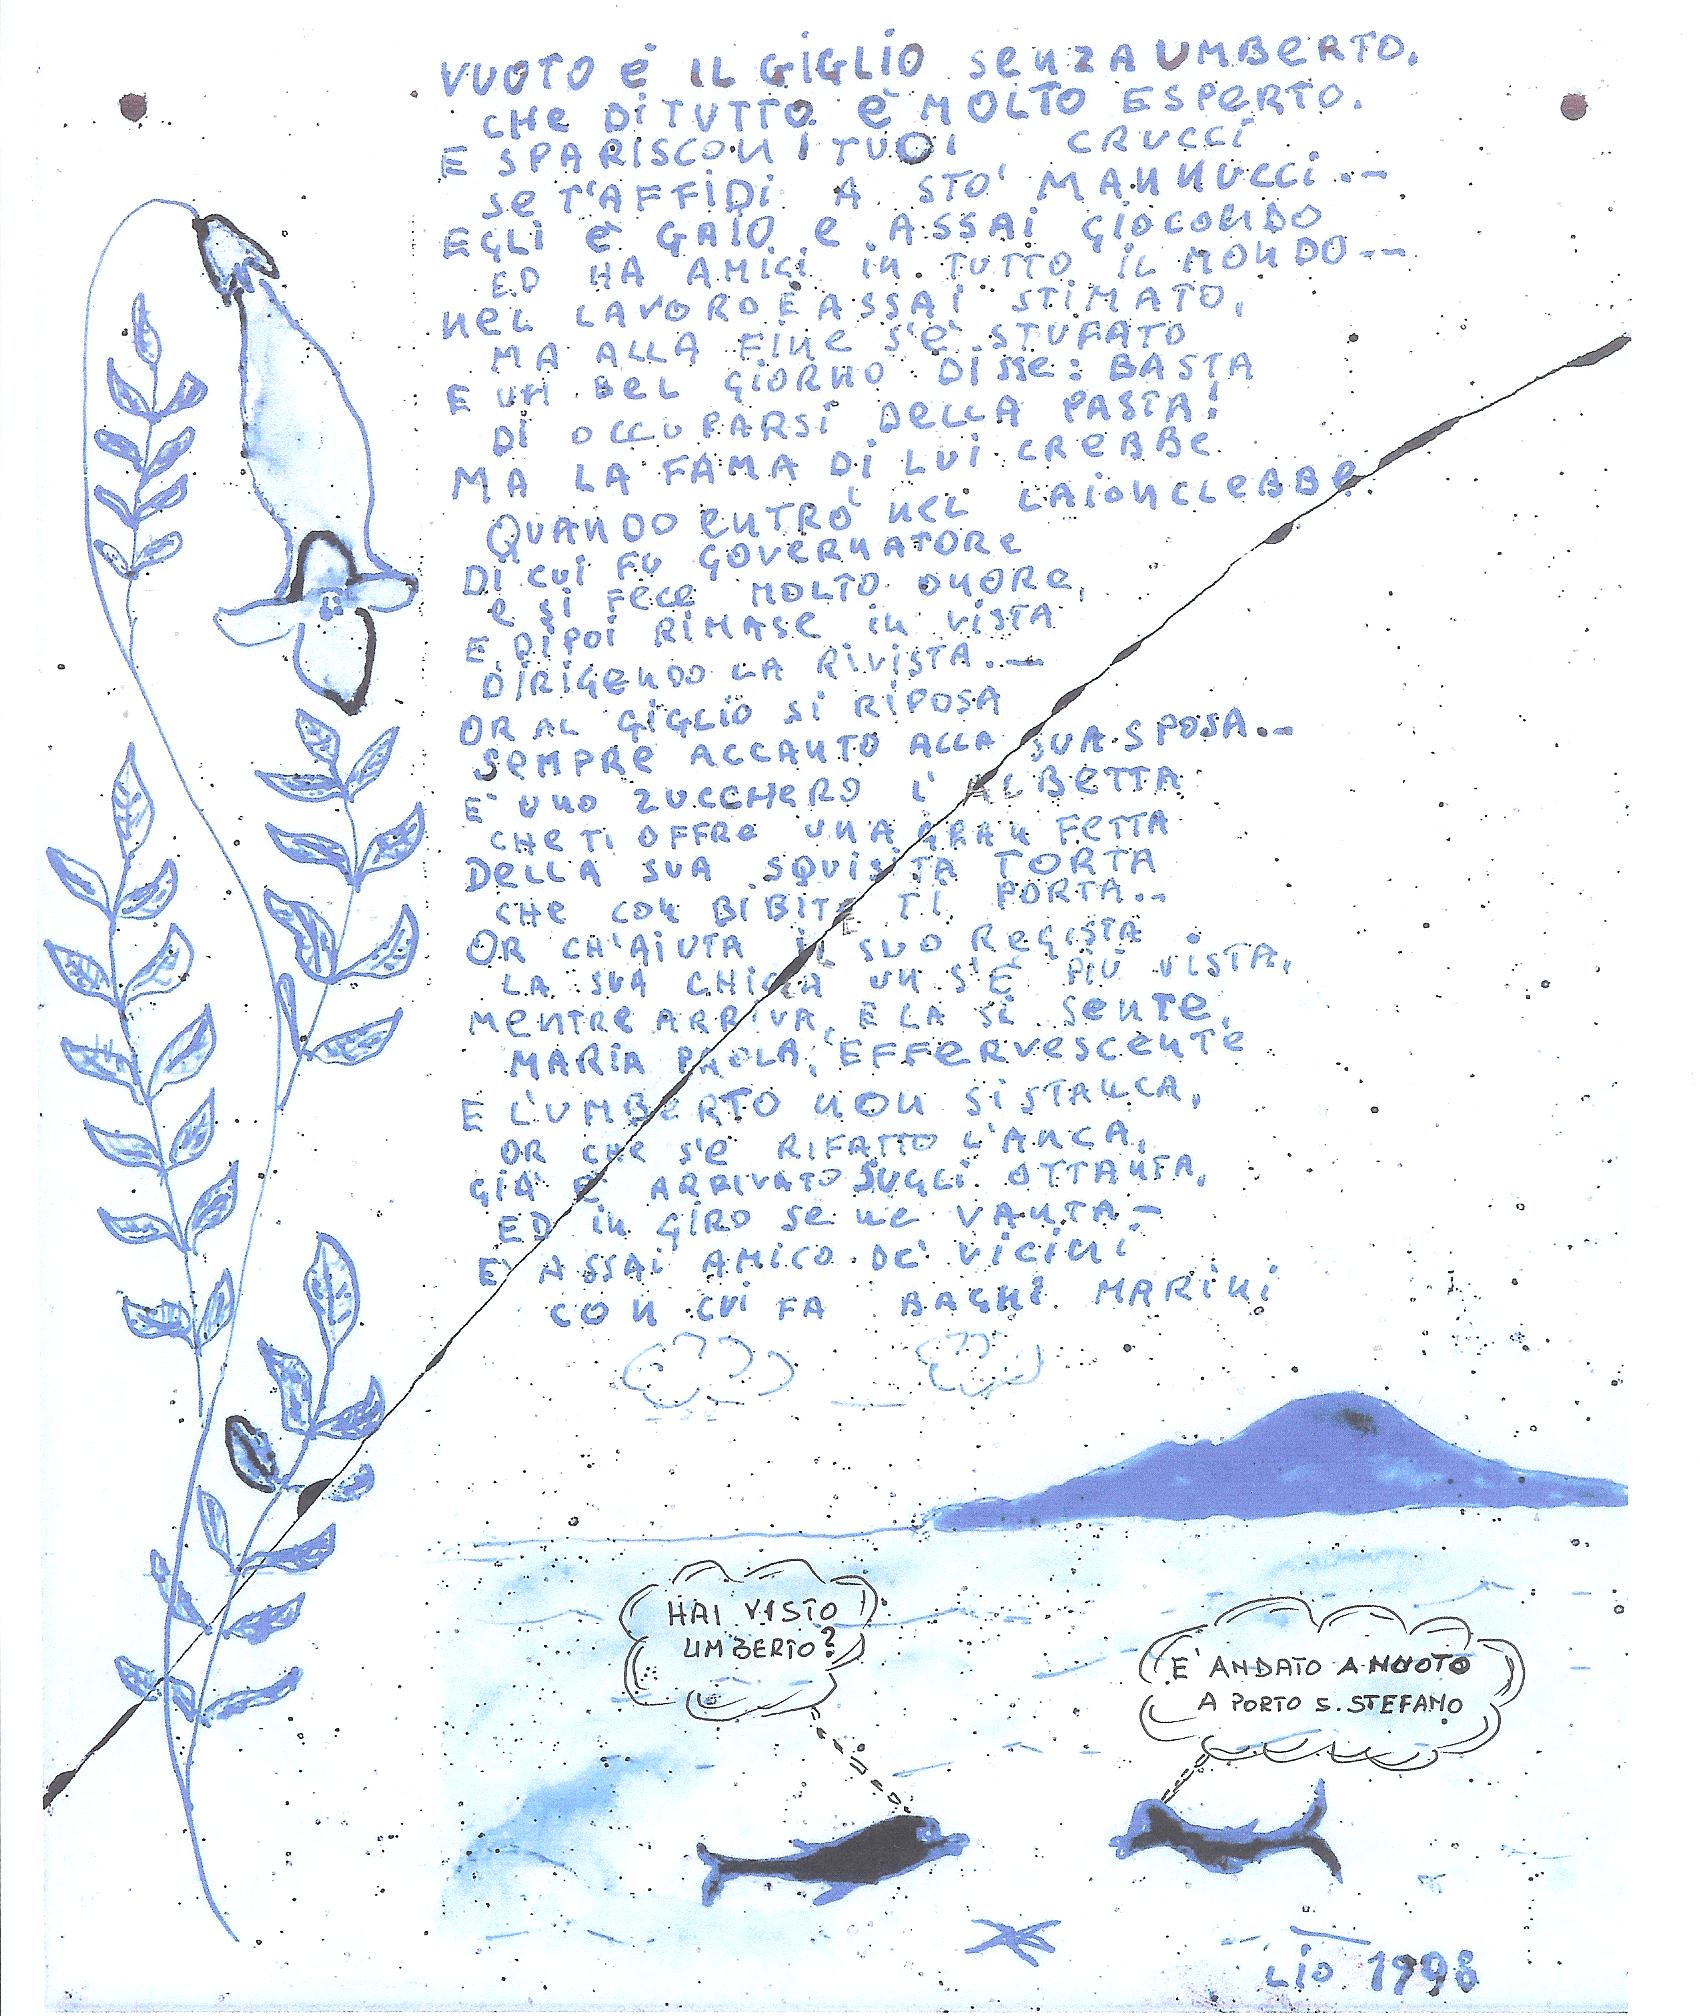 VUOTO è IL GIGLIO SENZA UMBERTO.
CHE DI TUTTO è MOLTO ESPERTO.
E SPARISCON I TUOI CRUCCI
SE T'AFFIDI A STO' MANNUCCI.-
EGLI è GAIO E ASSAI GIOCONDO
ED HA AMICI IN TUTTO IL MONDO--
NEL LAVORO È ASSAI STIMATO,
MA ALLA FINE S'È STUFATO
E UN BEL GIORNO DISSE: BASTA
DI OCCUPARSI DELLA PASTA!
MA LA FAMA DI LUI CREBBE
QUANDO ENTRÒ NEL LAIONCLEBBE.
DI CUI FU GOVERNATORE
E SI FECE MOLTO ONORE,
E DIPOI RIMASE IN VISTA
DIRIGENDO LA RIVISTA.-
OR AL GIGLIO SI RIPOSA
SEMPRE ACCANTO ALLA SUA SPOSA..-
E' UNO ZUCCHERO L'ALBETTA
CHE TI OFFRE UNA GRAN FETTA
DELLA SUA SQUISITA TORTA
CHE CON BIBITE TI PORTA..
OR CH'AIUTA IL SUO REGISTA
LA SUA CHICCA UN S'È PIÙ VISTA,
MENTRE ARRIVA, E LA SI SENTE,
MARIA PAOLA, EFFERVESCENTE
E L'UMBERTO NON SI STANCA,
OR CHE S'È RIFATTO L'ANCA,
GIÀ È ARRIVATO SUGLI OTTANTA,
ED IN GIRO SE NE VANTA.-
E' ASSAI AMICO DE' VICINI
CON CUI FA BAGNI MARINI
HAI VISTO
UMBERTO?
E' ANDATO A NUOTO
A PORTO S. STEFANO
LIO 1998